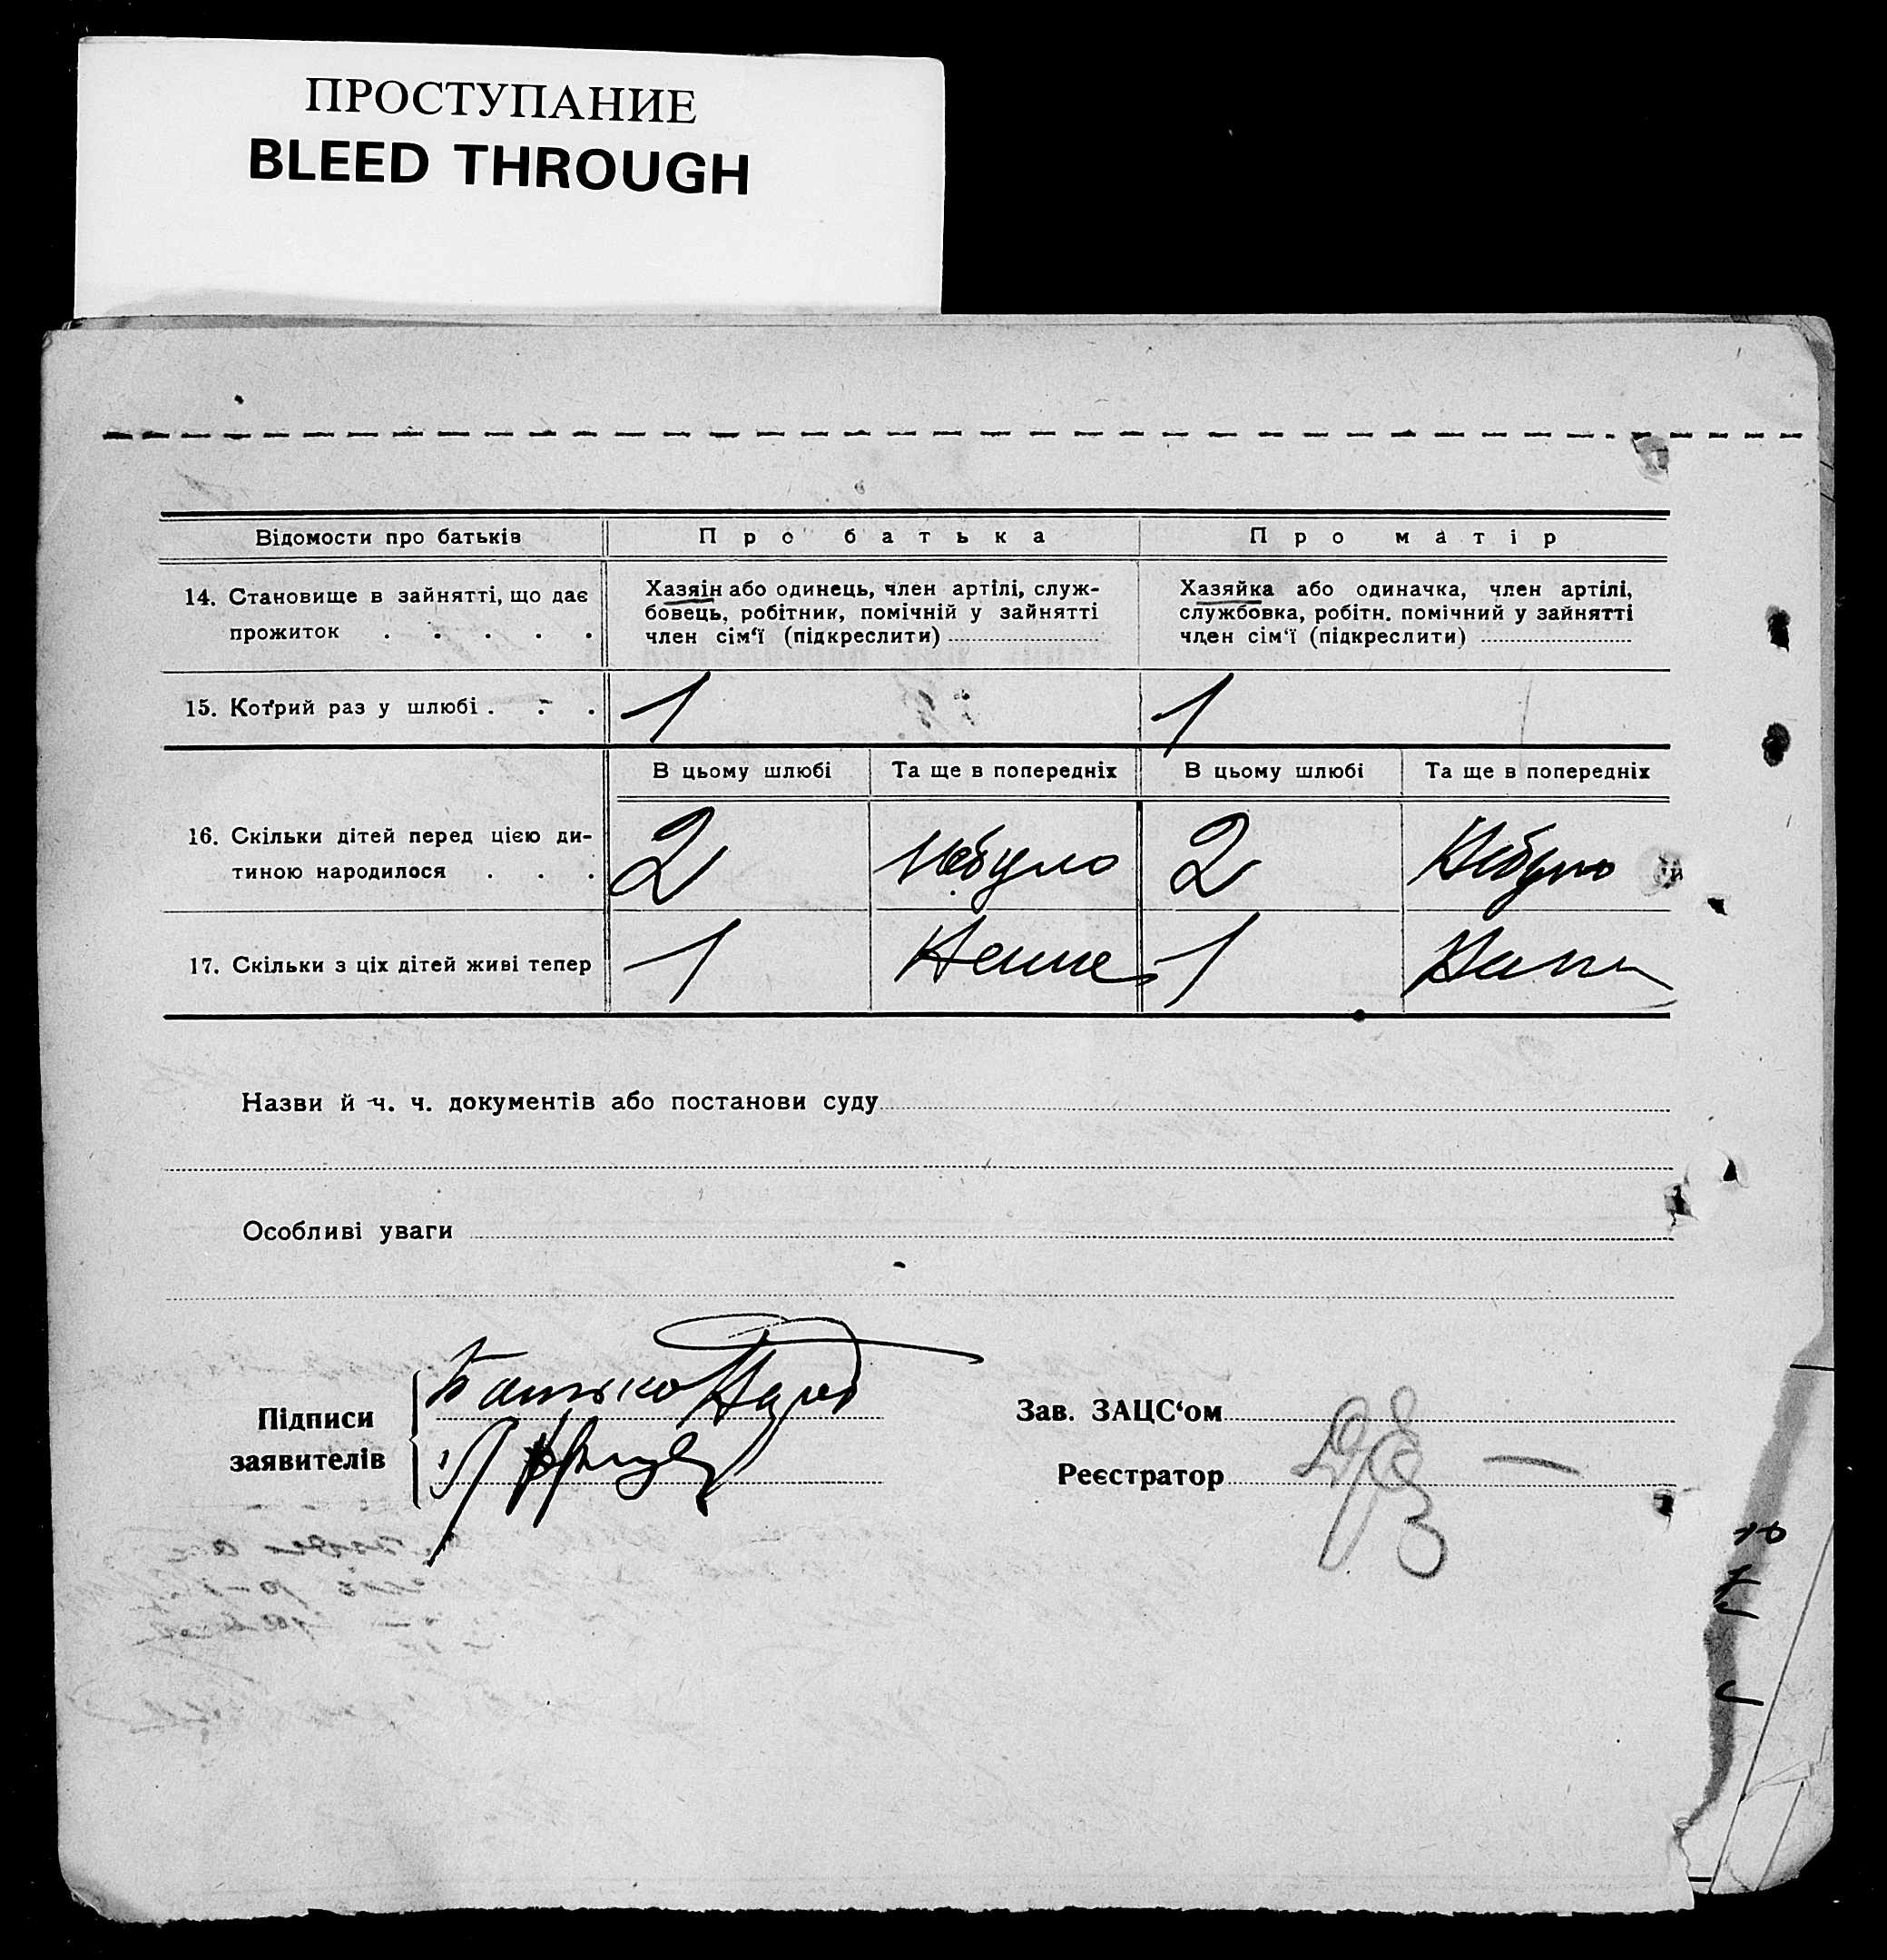 ПРОСТУПАНИЕ
BLEED THROUGH
Відомости про батьків
Про батька
Про матір
14. Становище в зайнятті, що дає
прожиток . . . . .
Хазяін або одинець, член артілі, служ-
бовець, робітник, помічній у зайнятті
член сім‘ї (підкреслити)
Хазяйка або одиначка, член артілі,
службовка, робітн. помічний у зайнятті
член сім‘ї (підкреслити)
15. Котрий раз у шлюбі . . .
1
1
В цьому шлюбі
Та ще в попередніх
В цьому шлюбі
Та ще в попередніх
16. Скільки дітей перед цією ди-
тиною народилося . . .
2
Небуло
2
Небуло
17. Скільки з ціх дітей живі тепер
1
1
Назви й ч. ч. документів або постанови суду
Особливі уваги
Підписи
заявителів
Батько
Зав. ЗАЦС‘ом
Реєстратор